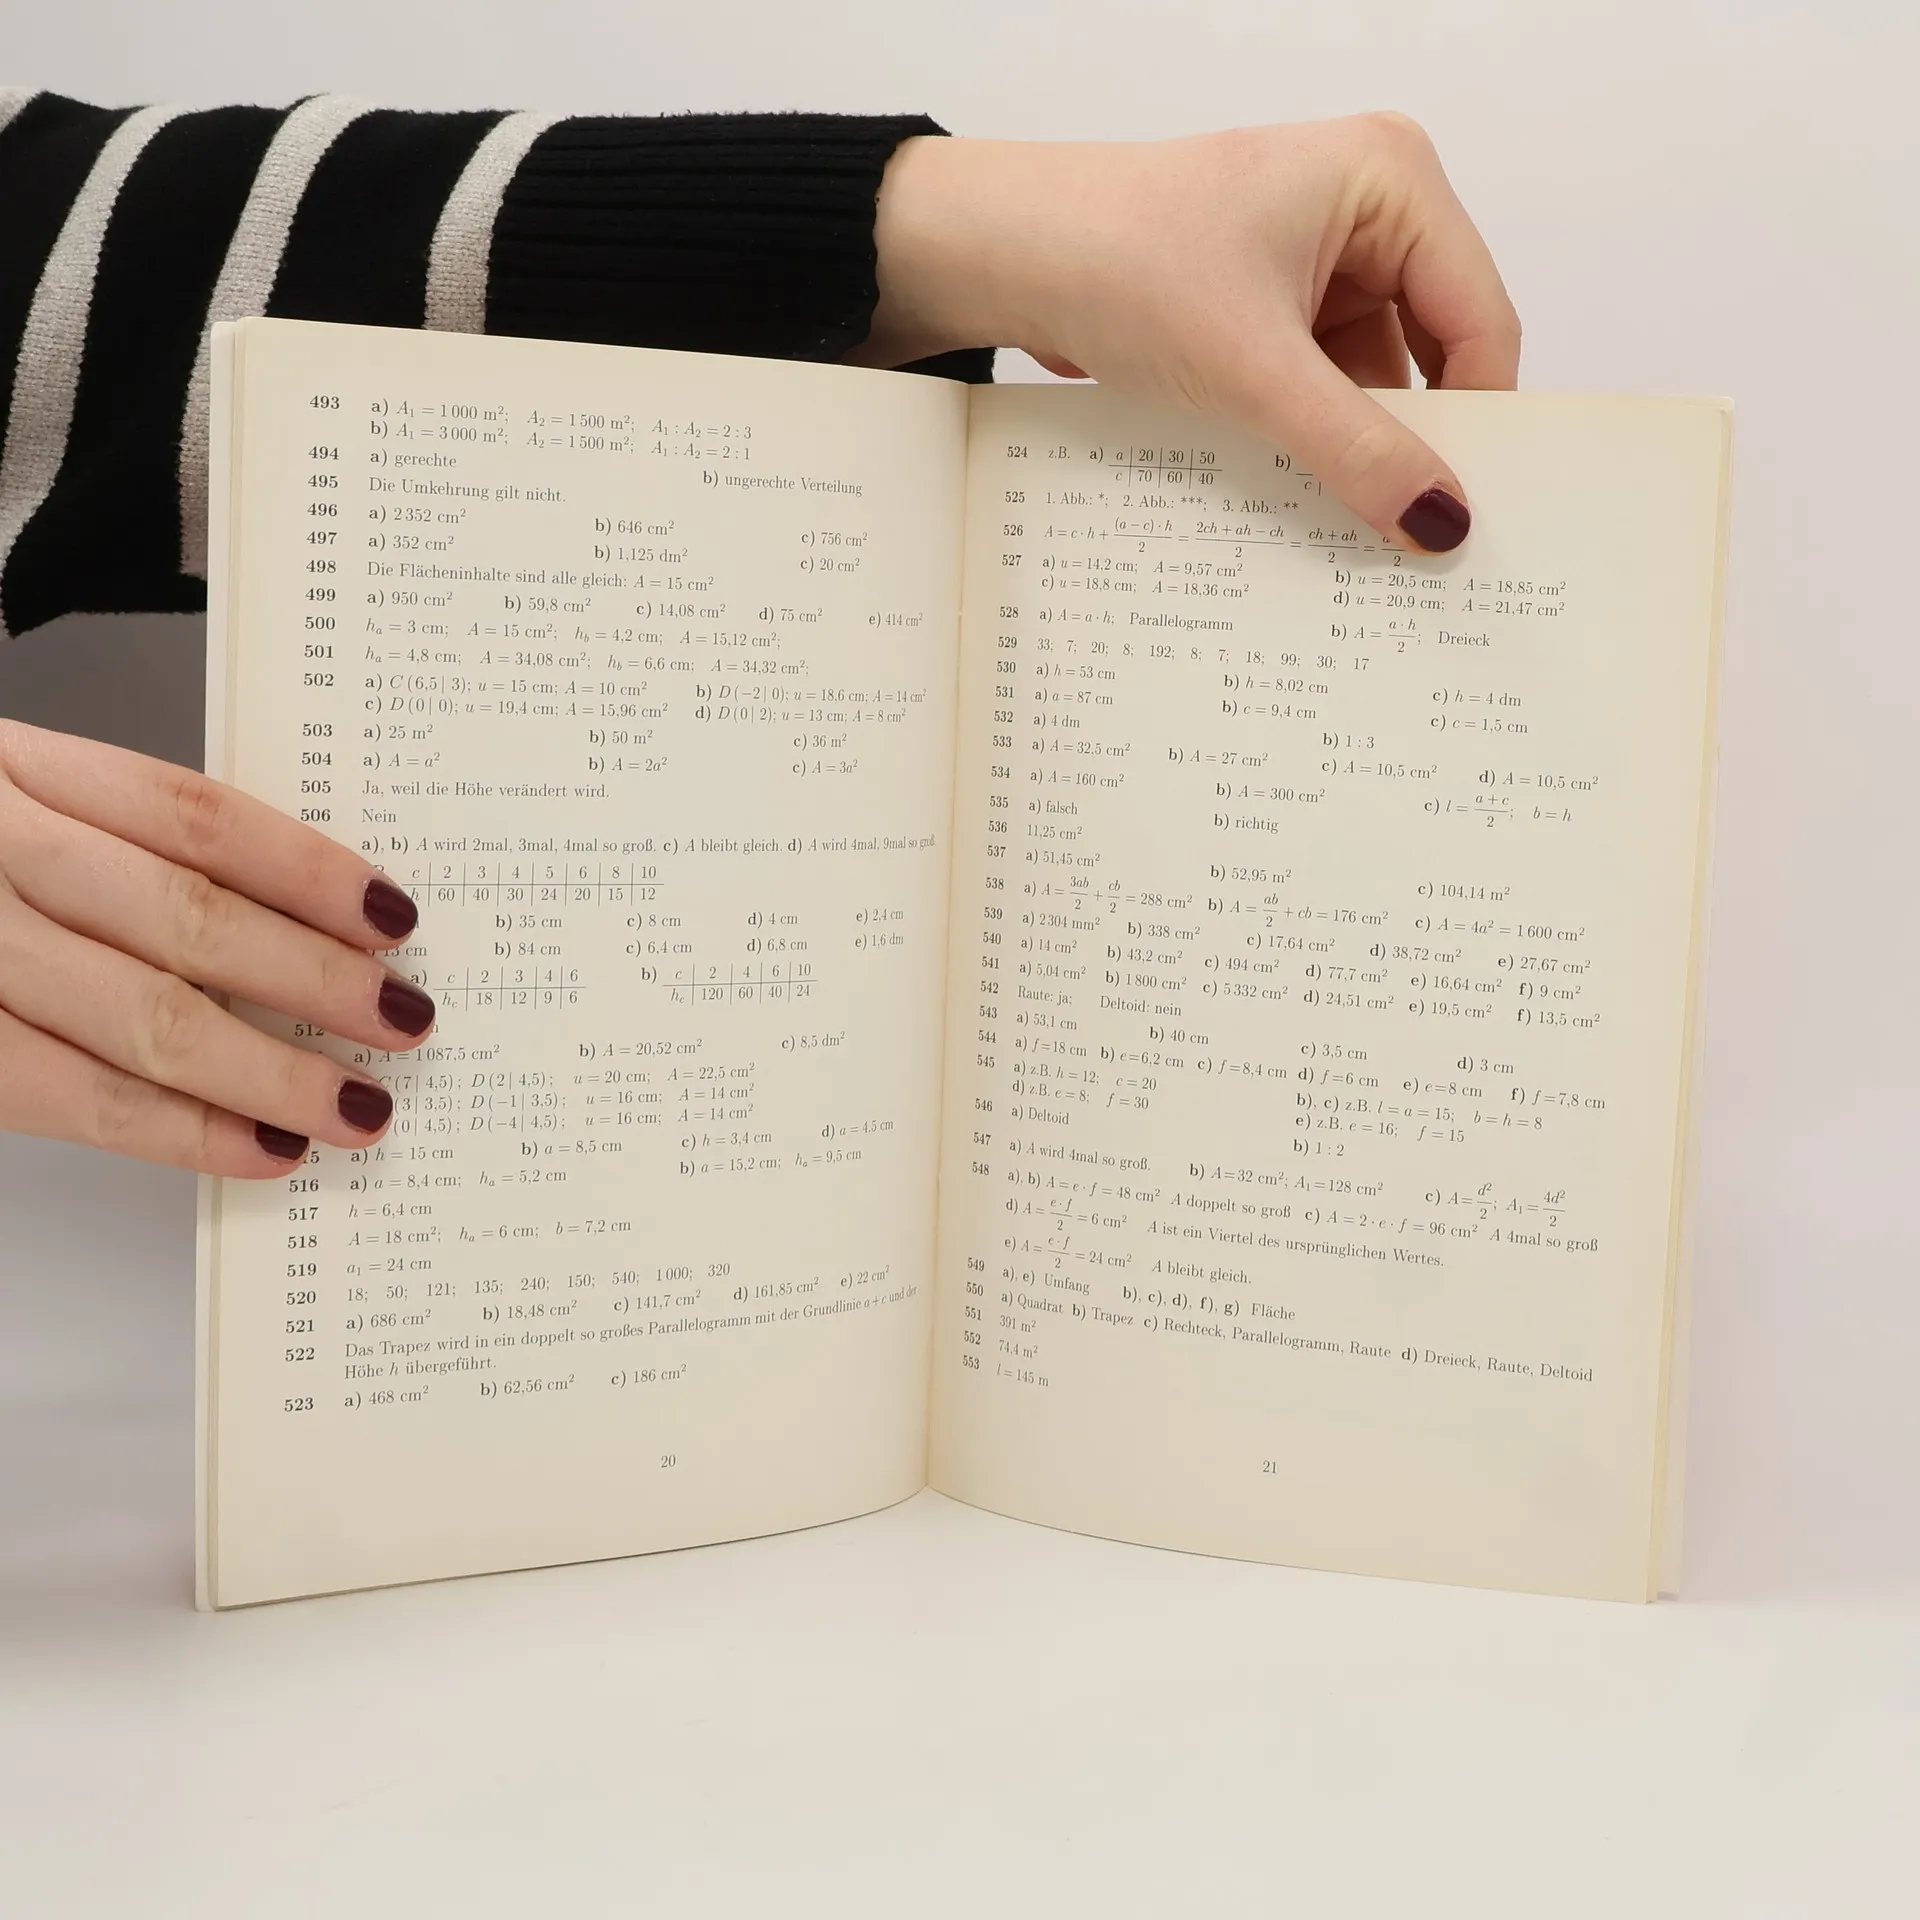 493 a) A₁ = 1 000 m²; A₂ = 1 500 m²; A₁ : A₂ = 2 : 3
b) A₁ = 3 000 m²; A₂ = 1 500 m²; A₁ : A₂ = 2 : 1
494 a) gerechte b) ungerechte Verteilung
495 Die Umkehrung gilt nicht.
496 a) 2 352 cm² b) 646 cm² c) 756 cm²
497 a) 352 cm² b) 1,125 dm² c) 20 cm²
498 Die Flächeninhalte sind alle gleich: A = 15 cm²
499 a) 950 cm² b) 59,8 cm² c) 14,08 cm² d) 75 cm² e) 414 cm²
500 hₐ = 3 cm; A = 15 cm²; h_b = 4,2 cm; A = 15,12 cm²;
501 hₐ = 4,8 cm; A = 34,08 cm²; h_b = 6,6 cm; A = 34,32 cm²;
502 a) C (6,5 | 3); u = 15 cm; A = 10 cm² b) D (−2 | 0); u = 18,6 cm; A = 14 cm²
c) D (0 | 0); u = 19,4 cm; A = 15,96 cm² d) D (0 | 2); u = 13 cm; A = 8 cm²
503 a) 25 m² b) 50 m² c) 36 m²
504 a) A = a² b) A = 2a² c) A = 3a²
505 Ja, weil die Höhe verändert wird.
506 Nein
a), b) A wird 2mal, 3mal, 4mal so groß. c) A bleibt gleich. d) A wird 4mal, 9mal so groß.
c | 2 | 3 | 4 | 5 | 6 | 8 | 10
h | 60 | 40 | 30 | 24 | 20 | 15 | 12
b) 35 cm c) 8 cm d) 4 cm e) 2,4 cm
13 cm b) 84 cm c) 6,4 cm d) 6,8 cm e) 1,6 dm
a) c | 2 | 3 | 4 | 6 b) c | 2 | 4 | 6 | 10
h_c | 18 | 12 | 9 | 6 h_c | 120 | 60 | 40 | 24
512
a) A = 1 087,5 cm² b) A = 20,52 cm² c) 8,5 dm²
C (7 | 4,5); D (2 | 4,5); u = 20 cm; A = 22,5 cm²
(3 | 3,5); D (−1 | 3,5); u = 16 cm; A = 14 cm²
(0 | 4,5); D (−4 | 4,5); u = 16 cm; A = 14 cm²
5 a) h = 15 cm b) a = 8,5 cm c) h = 3,4 cm d) a = 4,5 cm
516 a) a = 8,4 cm; hₐ = 5,2 cm b) a = 15,2 cm; hₐ = 9,5 cm
517 h = 6,4 cm
518 A = 18 cm²; hₐ = 6 cm; b = 7,2 cm
519 a₁ = 24 cm
520 18; 50; 121; 135; 240; 150; 540; 1 000; 320
521 a) 686 cm² b) 18,48 cm² c) 141,7 cm² d) 161,85 cm² e) 22 cm²
522 Das Trapez wird in ein doppelt so großes Parallelogramm mit der Grundlinie a + c und der
Höhe h übergeführt.
523 a) 468 cm² b) 62,56 cm² c) 186 cm²
20
524 z.B. a) a | 20 | 30 | 50 b)
c | 70 | 60 | 40 c |
525 1. Abb.: *; 2. Abb.: ***; 3. Abb.: **
526 A = c · h + (a − c) · h / 2 = 2ch + ah − ch / 2 = ch + ah / 2 = a / 2
527 a) u = 14,2 cm; A = 9,57 cm² b) u = 20,5 cm; A = 18,85 cm²
c) u = 18,8 cm; A = 18,36 cm² d) u = 20,9 cm; A = 21,47 cm²
528 a) A = a · h; Parallelogramm b) A = a · h / 2; Dreieck
529 33; 7; 20; 8; 192; 8; 7; 18; 99; 30; 17
530 a) h = 53 cm b) h = 8,02 cm c) h = 4 dm
531 a) a = 87 cm b) c = 9,4 cm c) c = 1,5 cm
532 a) 4 dm b) 1 : 3
533 a) A = 32,5 cm² b) A = 27 cm² c) A = 10,5 cm² d) A = 10,5 cm²
534 a) A = 160 cm² b) A = 300 cm² c) l = a + c / 2; b = h
535 a) falsch b) richtig
536 11,25 cm²
537 a) 51,45 cm² b) 52,95 m² c) 104,14 m²
538 a) A = 3ab / 2 + cb / 2 = 288 cm² b) A = ab / 2 + cb = 176 cm² c) A = 4a² = 1 600 cm²
539 a) 2 304 mm² b) 338 cm² c) 17,64 cm² d) 38,72 cm² e) 27,67 cm²
540 a) 14 cm² b) 43,2 cm² c) 494 cm² d) 77,7 cm² e) 16,64 cm² f) 9 cm²
541 a) 5,04 cm² b) 1 800 cm² c) 5 332 cm² d) 24,51 cm² e) 19,5 cm² f) 13,5 cm²
542 Raute: ja; Deltoid: nein
543 a) 53,1 cm b) 40 cm c) 3,5 cm d) 3 cm
544 a) f = 18 cm b) e = 6,2 cm c) f = 8,4 cm d) f = 6 cm e) e = 8 cm f) f = 7,8 cm
545 a) z.B. h = 12; c = 20 b), c) z.B. l = a = 15; b = h = 8
d) z.B. e = 8; f = 30 e) z.B. e = 16; f = 15
546 a) Deltoid b) 1 : 2
547 a) A wird 4mal so groß. b) A = 32 cm²; A₁ = 128 cm² c) A = d² / 2; A₁ = 4d² / 2
548 a), b) A = e · f = 48 cm² A doppelt so groß c) A = 2 · e · f = 96 cm² A 4mal so groß
d) A = e · f / 2 = 6 cm² A ist ein Viertel des ursprünglichen Wertes.
e) A = e · f / 2 = 24 cm² A bleibt gleich.
549 a), e) Umfang b), c), d), f), g) Fläche
550 a) Quadrat b) Trapez c) Rechteck, Parallelogramm, Raute d) Dreieck, Raute, Deltoid
551 391 m²
552 74,4 m²
553 l = 145 m
21